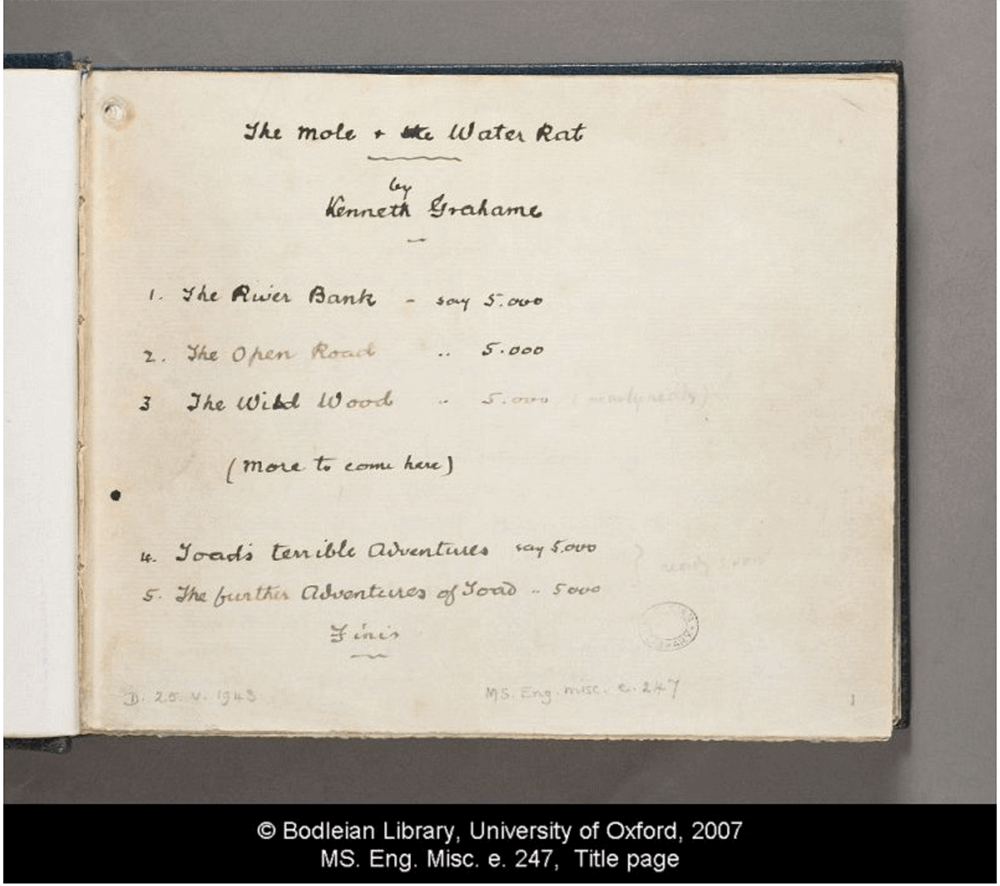 The Mole + the Water Rat
by
Kenneth Grahame
1. The River Bank - say 5.000
2. The Open Road .. 5.000
3 The Wild Wood .. 5.000 (nearly ready)
(more to come here)
4. Toad's terrible Adventures say 5,000
5. The further Adventures of Toad .. 5000
} ready soon
Finis
D. 25. V. 1943
MS. Eng. misc. e. 247
1
© Bodleian Library, University of Oxford, 2007
MS. Eng. Misc. e. 247, Title page